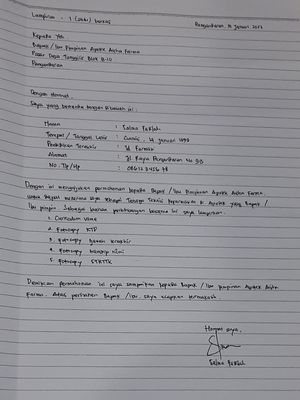 Lampiran : 1 (satu) berkas
Pangandaran, 14 Januari 2022
Kepada Yth
Bapak / Ibu Pimpinan Apotek Aisha Farma
Pasar Desa Blok B.10
Pangandaran
Dengan Hormat,
Saya yang bertanda tangan dibawah ini :
Nama : Salwa
Tempat / Tanggal Lahir : Ciamis, 14 Januari 1999
Pendidikan Terakhir : D3 Farmasi
Alamat : Jl. Raya Pangandaran No 313
No. Tlp / Hp :
Dengan ini mengajukan permohonan kepada Bapak / Ibu Pimpinan Apotek Aisha Farma.
untuk dapat menerima saya sebagai Tenaga Teknis Kefarmasian di Apotek yang Bapak /
Ibu pimpin. Sebagai bahan pertimbangan bersama ini saya lampirkan :
1. Curiculum Vitae
2. Fotocopy KTP
3. Fotocopy Ijazah terakhir
4. Fotocopy transkip nilai
5. Fotocopy STRTTK
Demikian permohonan ini saya sampaikan kepada Bapak / Ibu Pimpinan Apotek Aisha
Farma. Atas perhatian Bapak / Ibu, saya ucapkan terimakasih.
Hormat saya,
Salwa